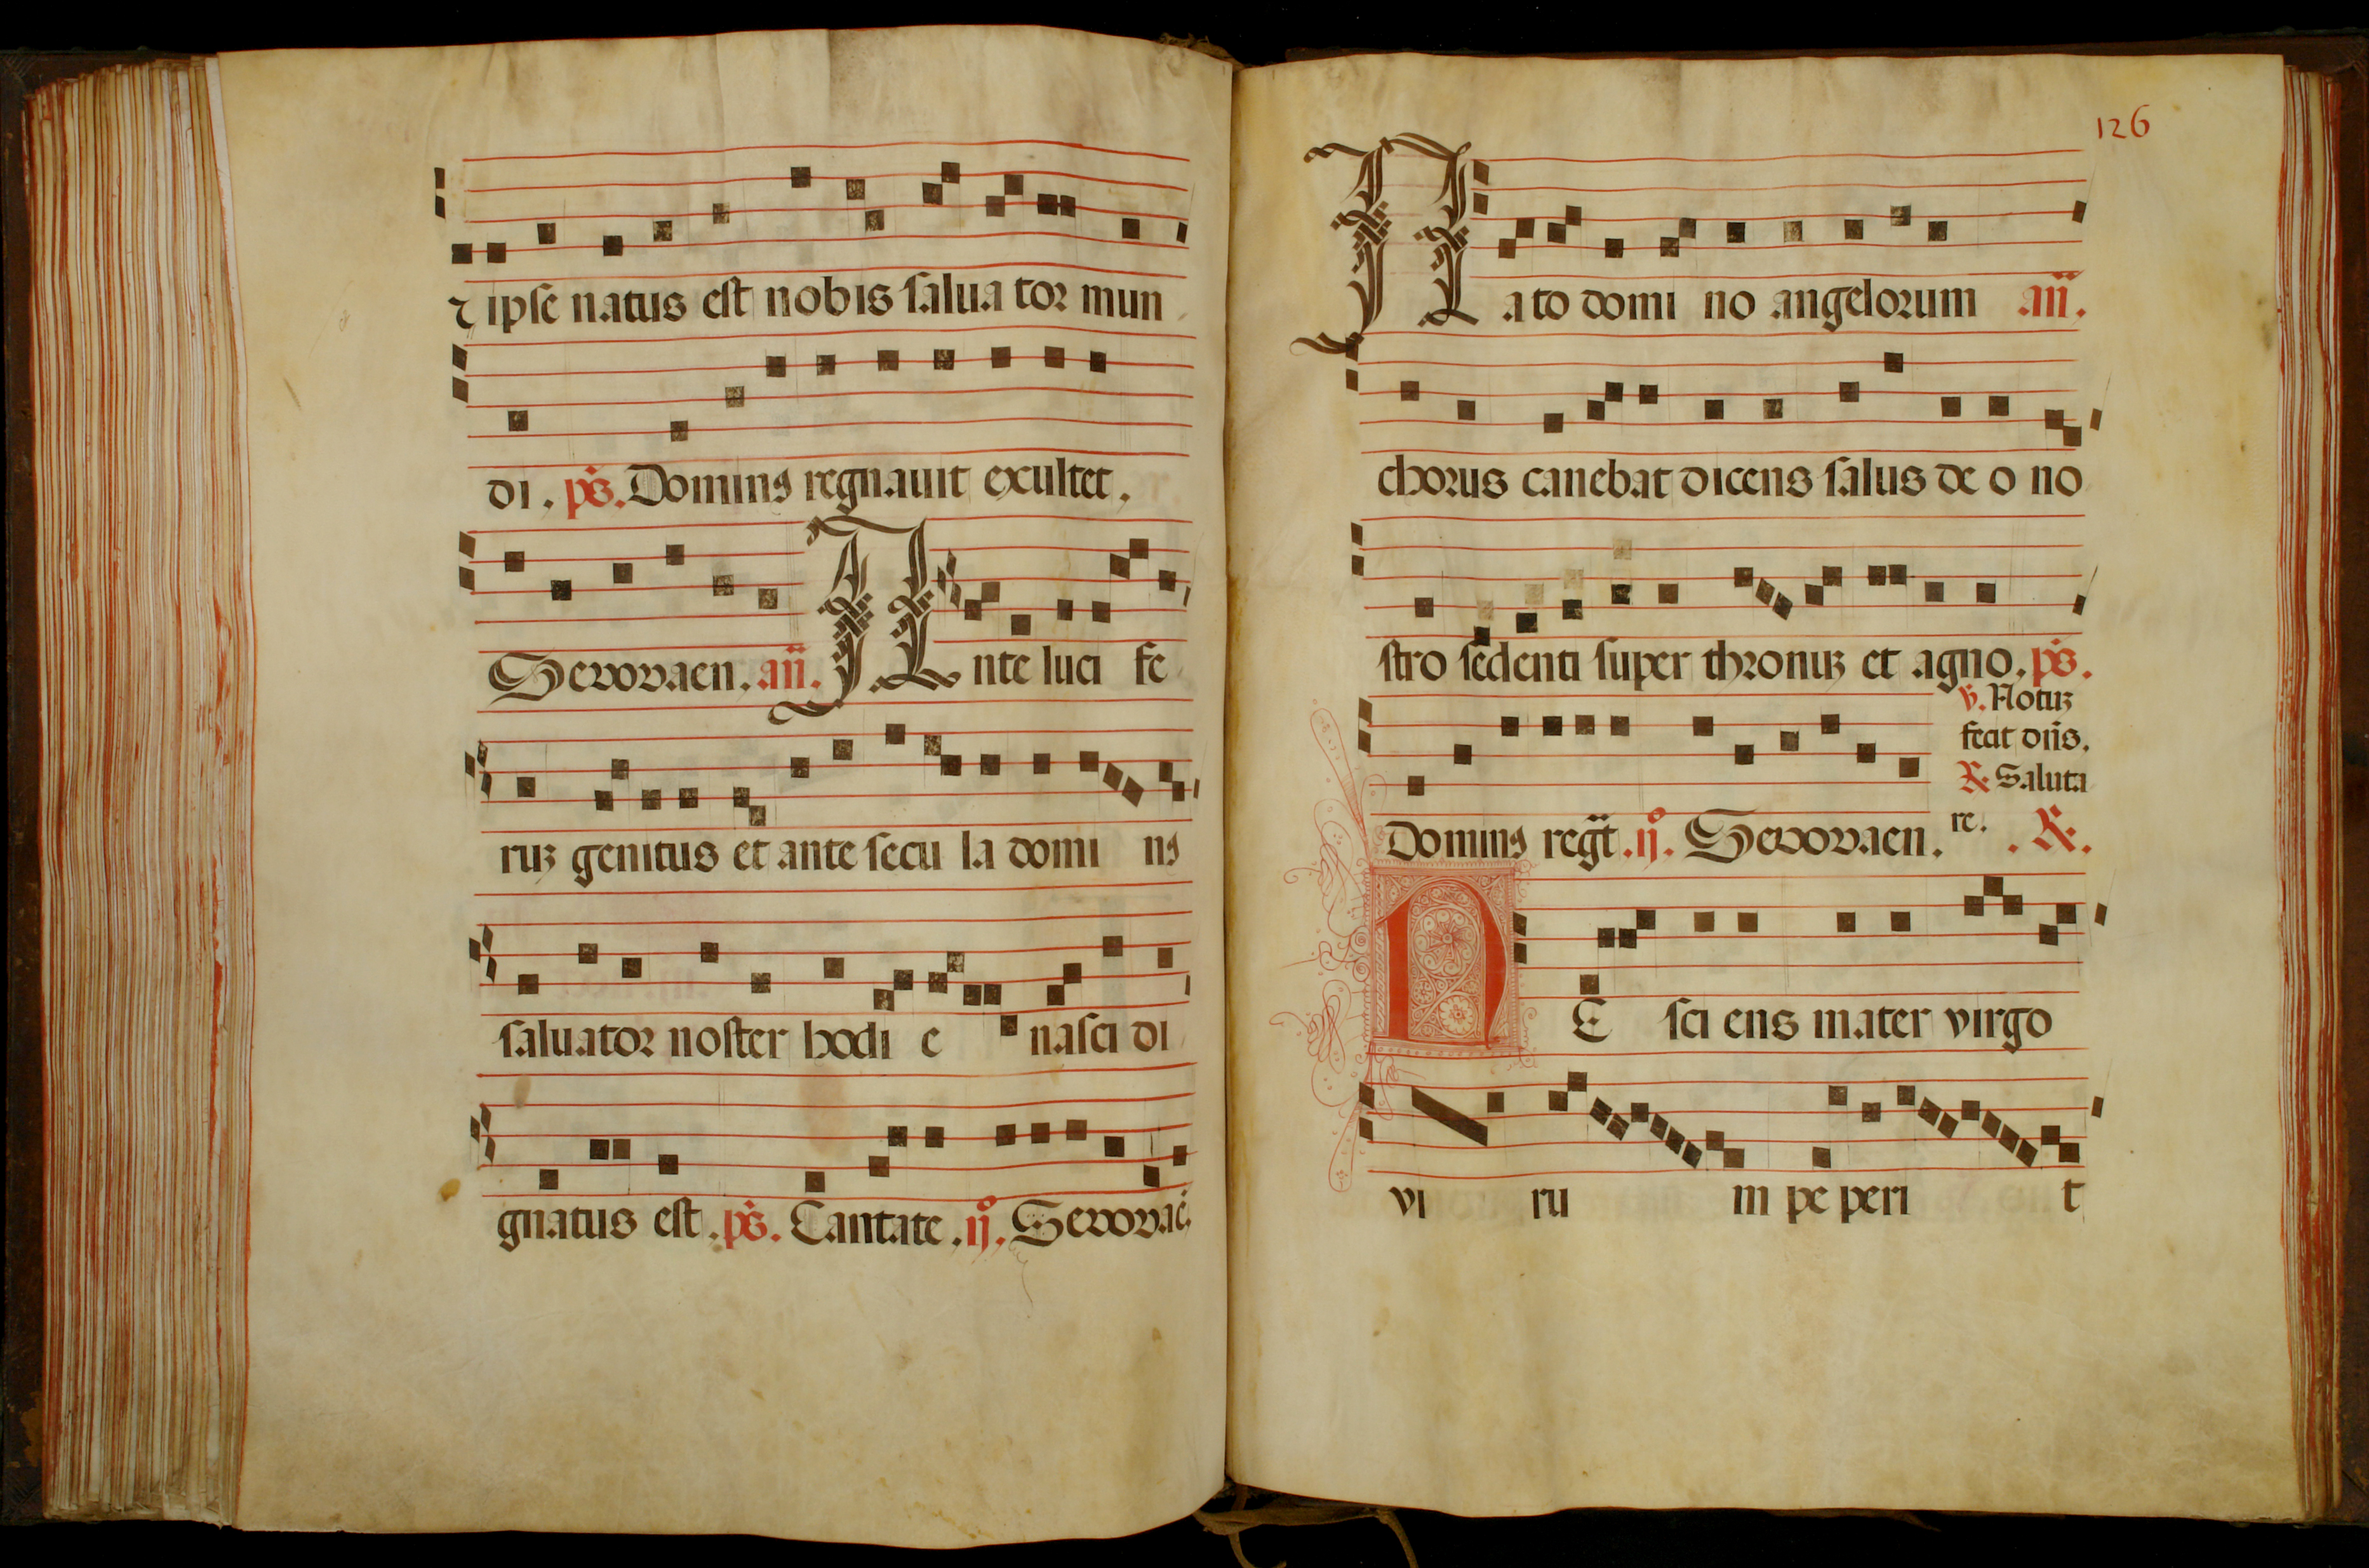 ⁊ ipse natus est nobis salua tor mun
di. ps. Dominꝰ regnauit exultet.
Seuouaen. añ. Ante luci fe
ruꝫ genitus et ante secu la domi nꝰ
saluator noster hodi e nasci di
gnatus est. ps. Cantate. ij°. Seuouae.
126
Nato domi no angelorum añ.
chorus canebat dicens salus de o no
stro sedenti super thronuꝫ et agno. ps.
℣. Notuꝫ
fecit dñs.
℟. Saluta
re.
Dominꝰ regt. ij°. Seuouaen. . ℟.
NE sci ens mater virgo
vi ru m pe peri t